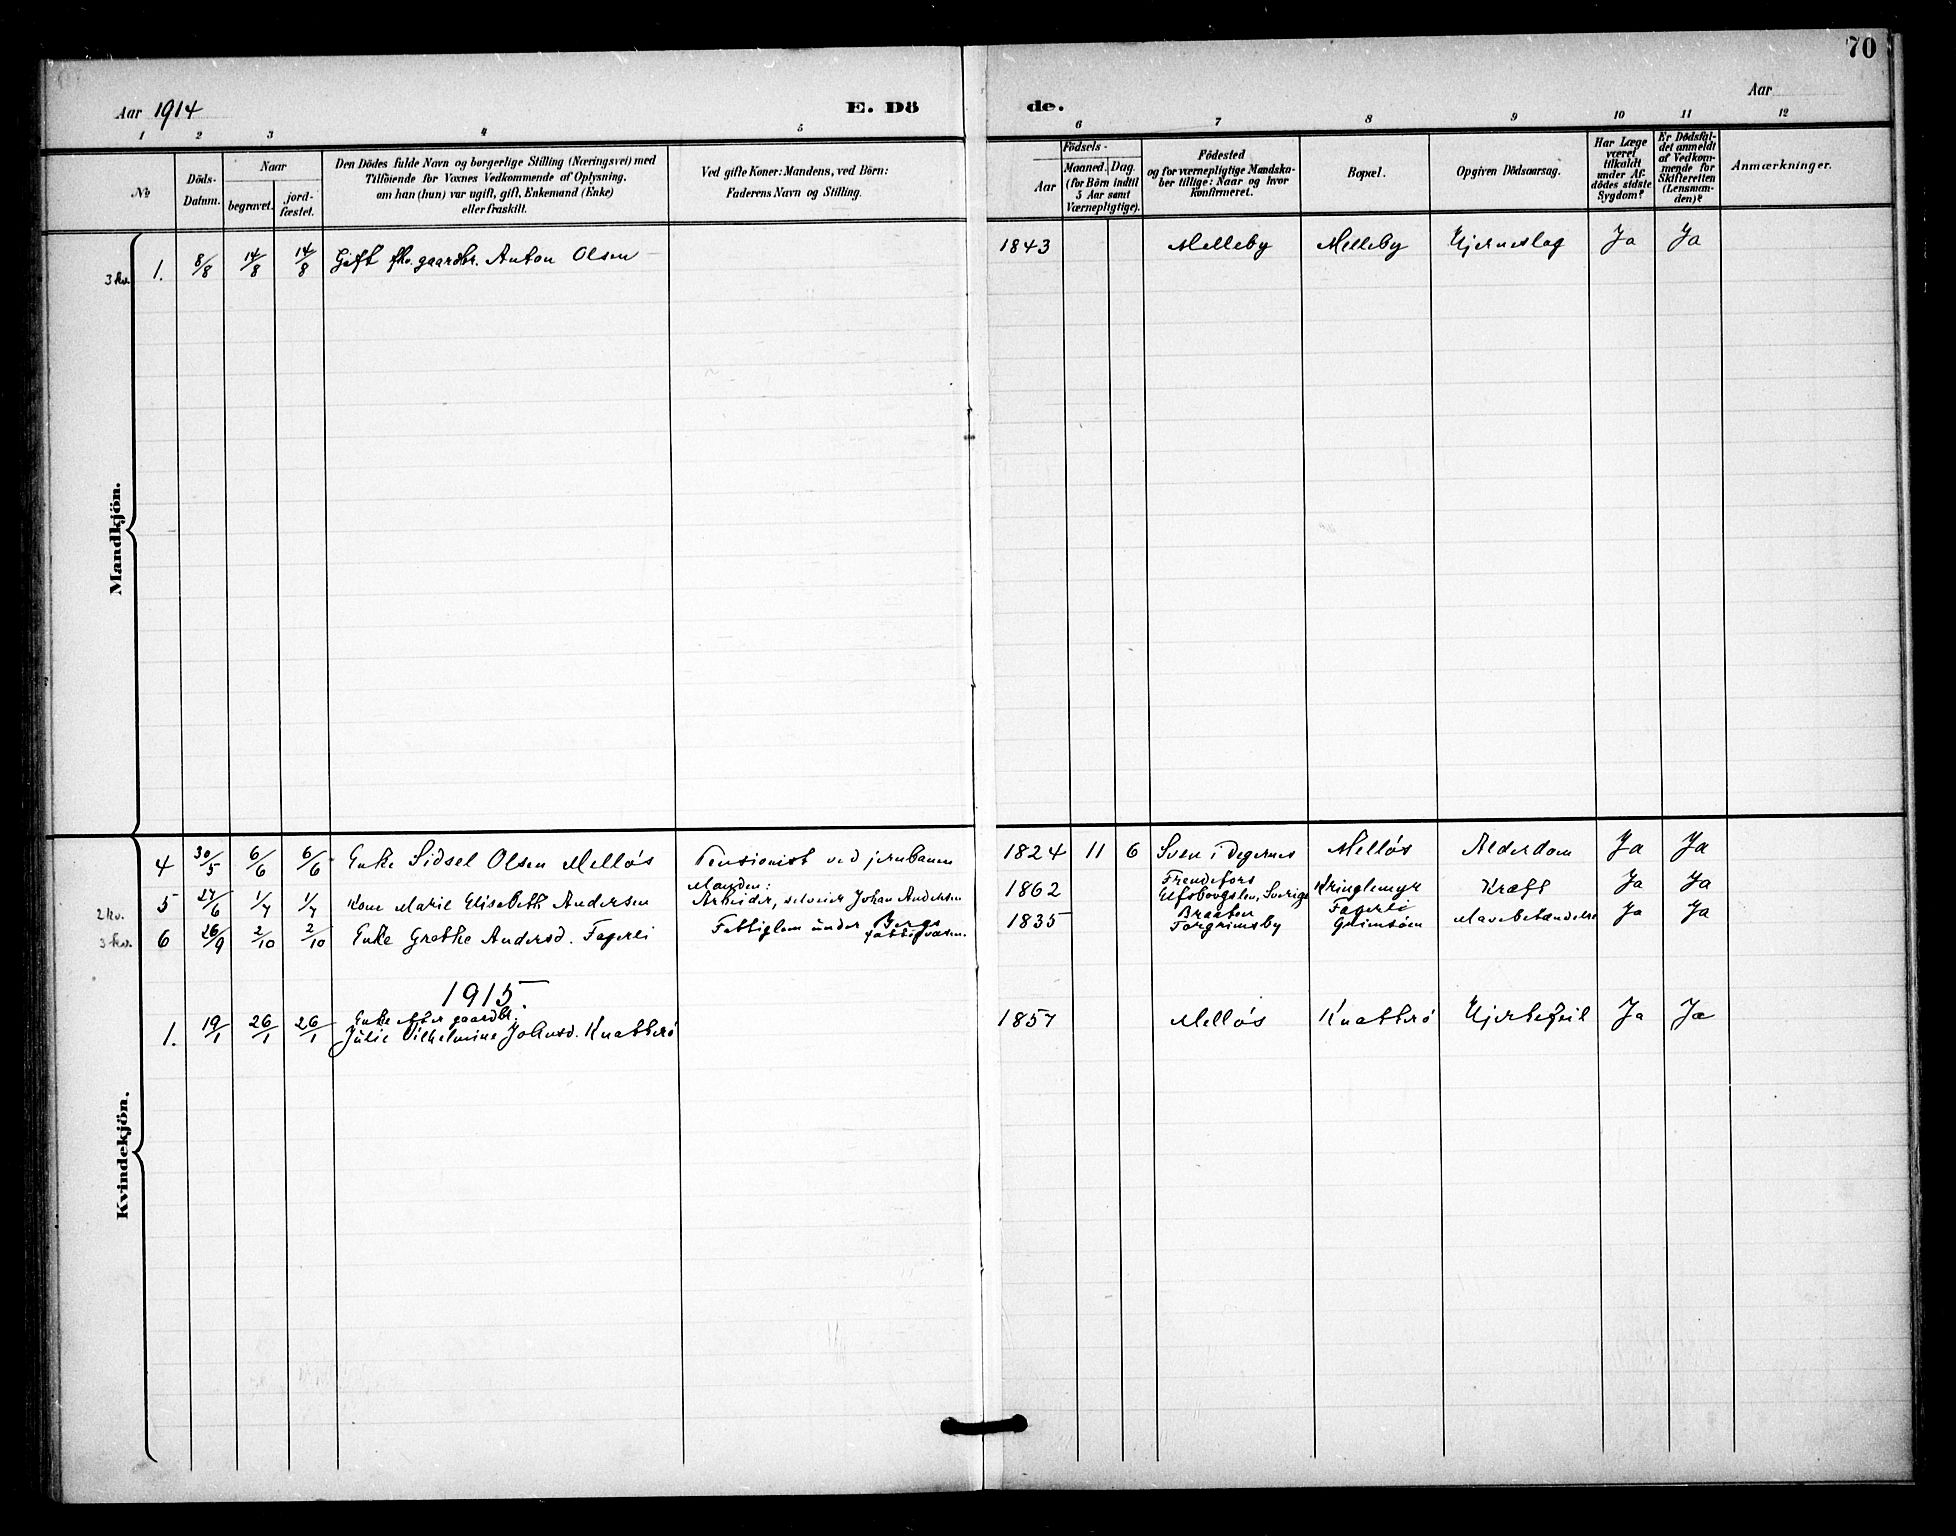 70
Aar 1914
E. Dö
de.
Aar
1 2 3 4 5 6 7 8 9 10 11 12
№
Döds-
Datum.
Naar
begravet.
jord-
fæstet.
Den Dödes fulde Navn og borgerlige Stilling (Næringsvei) med
Tilföiende for Voxnes Vedkommende af Oplysning,
om han (hun) var ugift, gift, Enkemand (Enke)
eller fraskilt.
Ved gifte Koner: Mandens, ved Börn:
Faderens Navn og Stilling.
Födsels-
Aar
Maaned. Dag.
(for Börn indtil
5 Aar samt
Værnepligtige).
Födested
og for værnepligtige Mandska-
ber tillige: Naar og hvor
konfirmeret.
Bopæl.
Opgiven Dödsaarsag.
Har Læge
været
tilkaldt
under Af-
dödes sidste
Sygdom?
Er Dødsfal-
det anmeldt
af Vedkom-
mende for
Skifteretten
(Lensman-
den)?
Anmærkninger.
Mandkjön.
3 kv. 1. 8/8 14/8 14/8 Gift fhv. gaardbr. Anton Olsen 1843 Melleby Melleby Hjerneslag Ja Ja
Kvindekjön.
4 30/5 6/6 6/6 Enke Sidsel Olsen Mellös Pensionist ved jernbanen 1824 11 6 Sven i Degernes Mellös Alderdom Ja Ja
Manden:
Frendefors
2 kv. 5 27/6 1/7 1/7 Kone Marie Elisabeth Andersen Arbeider, selveier Johan Andersen 1862 Elfsborgslen, Sverige Kringlemyr Kræft Ja Ja
Braaten Fagerli
3 kv. 6 26/9 2/10 2/10 Enke Grethe Andersd. Fagerli Fattiglem under Bergs fattigvæsen. 1835 Torgrimsby Grimsöen Mavebetændelse Ja Ja
1915.
Enke efter gaardbr.
1. 19/1 26/1 26/1 Julie Vilhelmine Johnsd. Knatterö 1857 Mellös Knatterö Hjertefeil Ja Ja